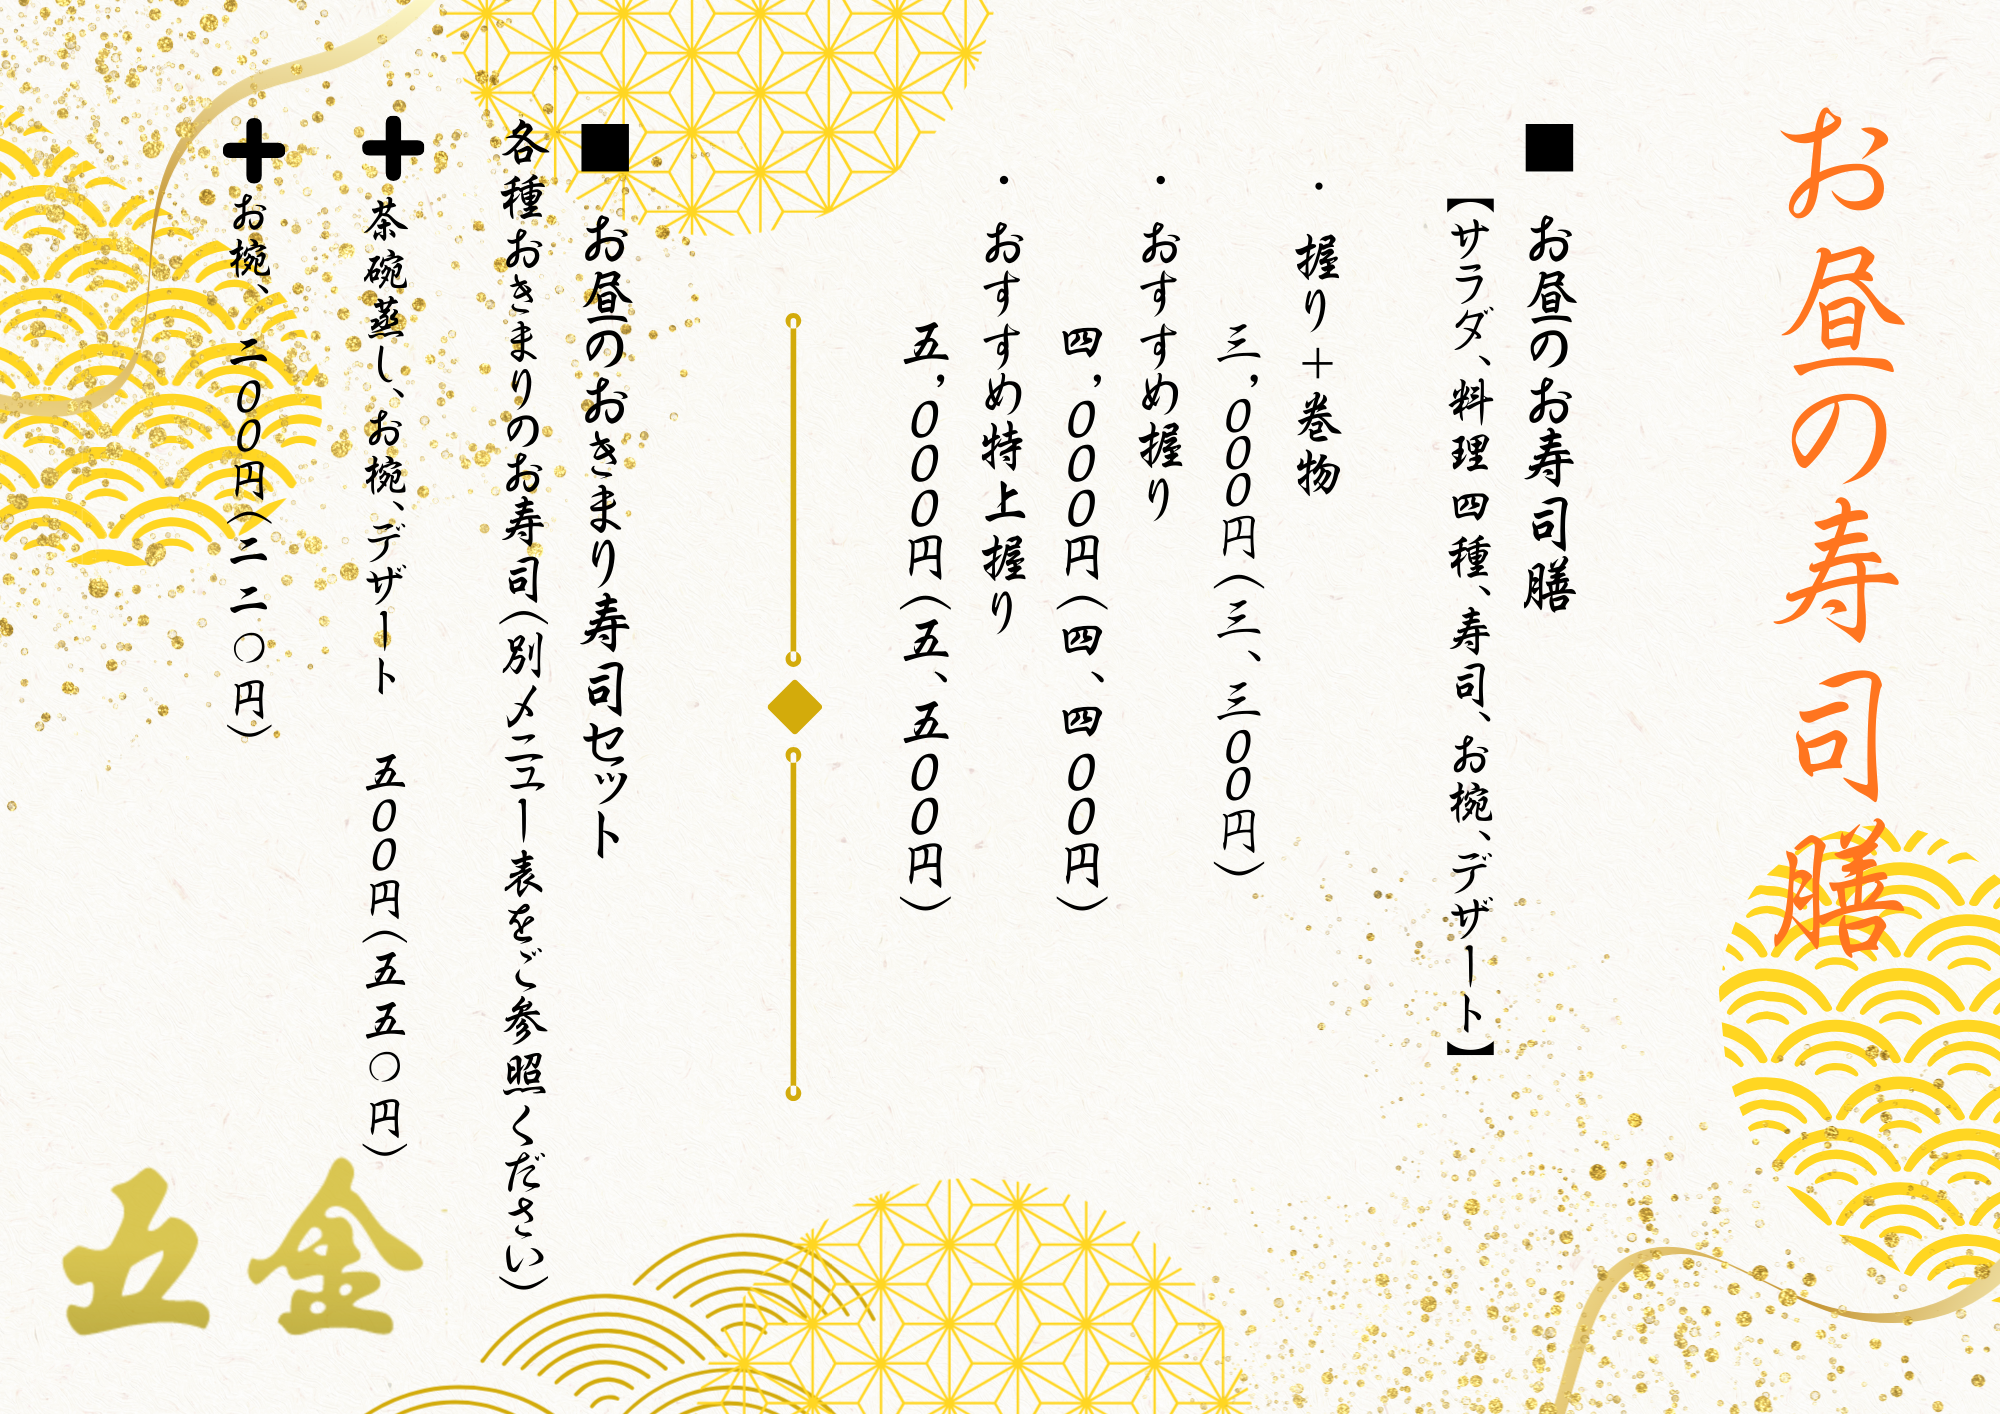 お昼の寿司膳
■ お昼のお寿司膳
【サラダ、料理四種、寿司、お椀、デザート】
・ 握り＋巻物
三,000円（三、三00円）
・ おすすめ握り
四,000円（四、四00円）
・ おすすめ特上握り
五,000円（五、五00円）
■ お昼のおきまり寿司セット
各種おきまりのお寿司（別メニュー表をご参照ください）
➕ 茶碗蒸し、お椀、デザート 五00円（五五〇円）
➕ お椀、二00円（二二〇円）
金五